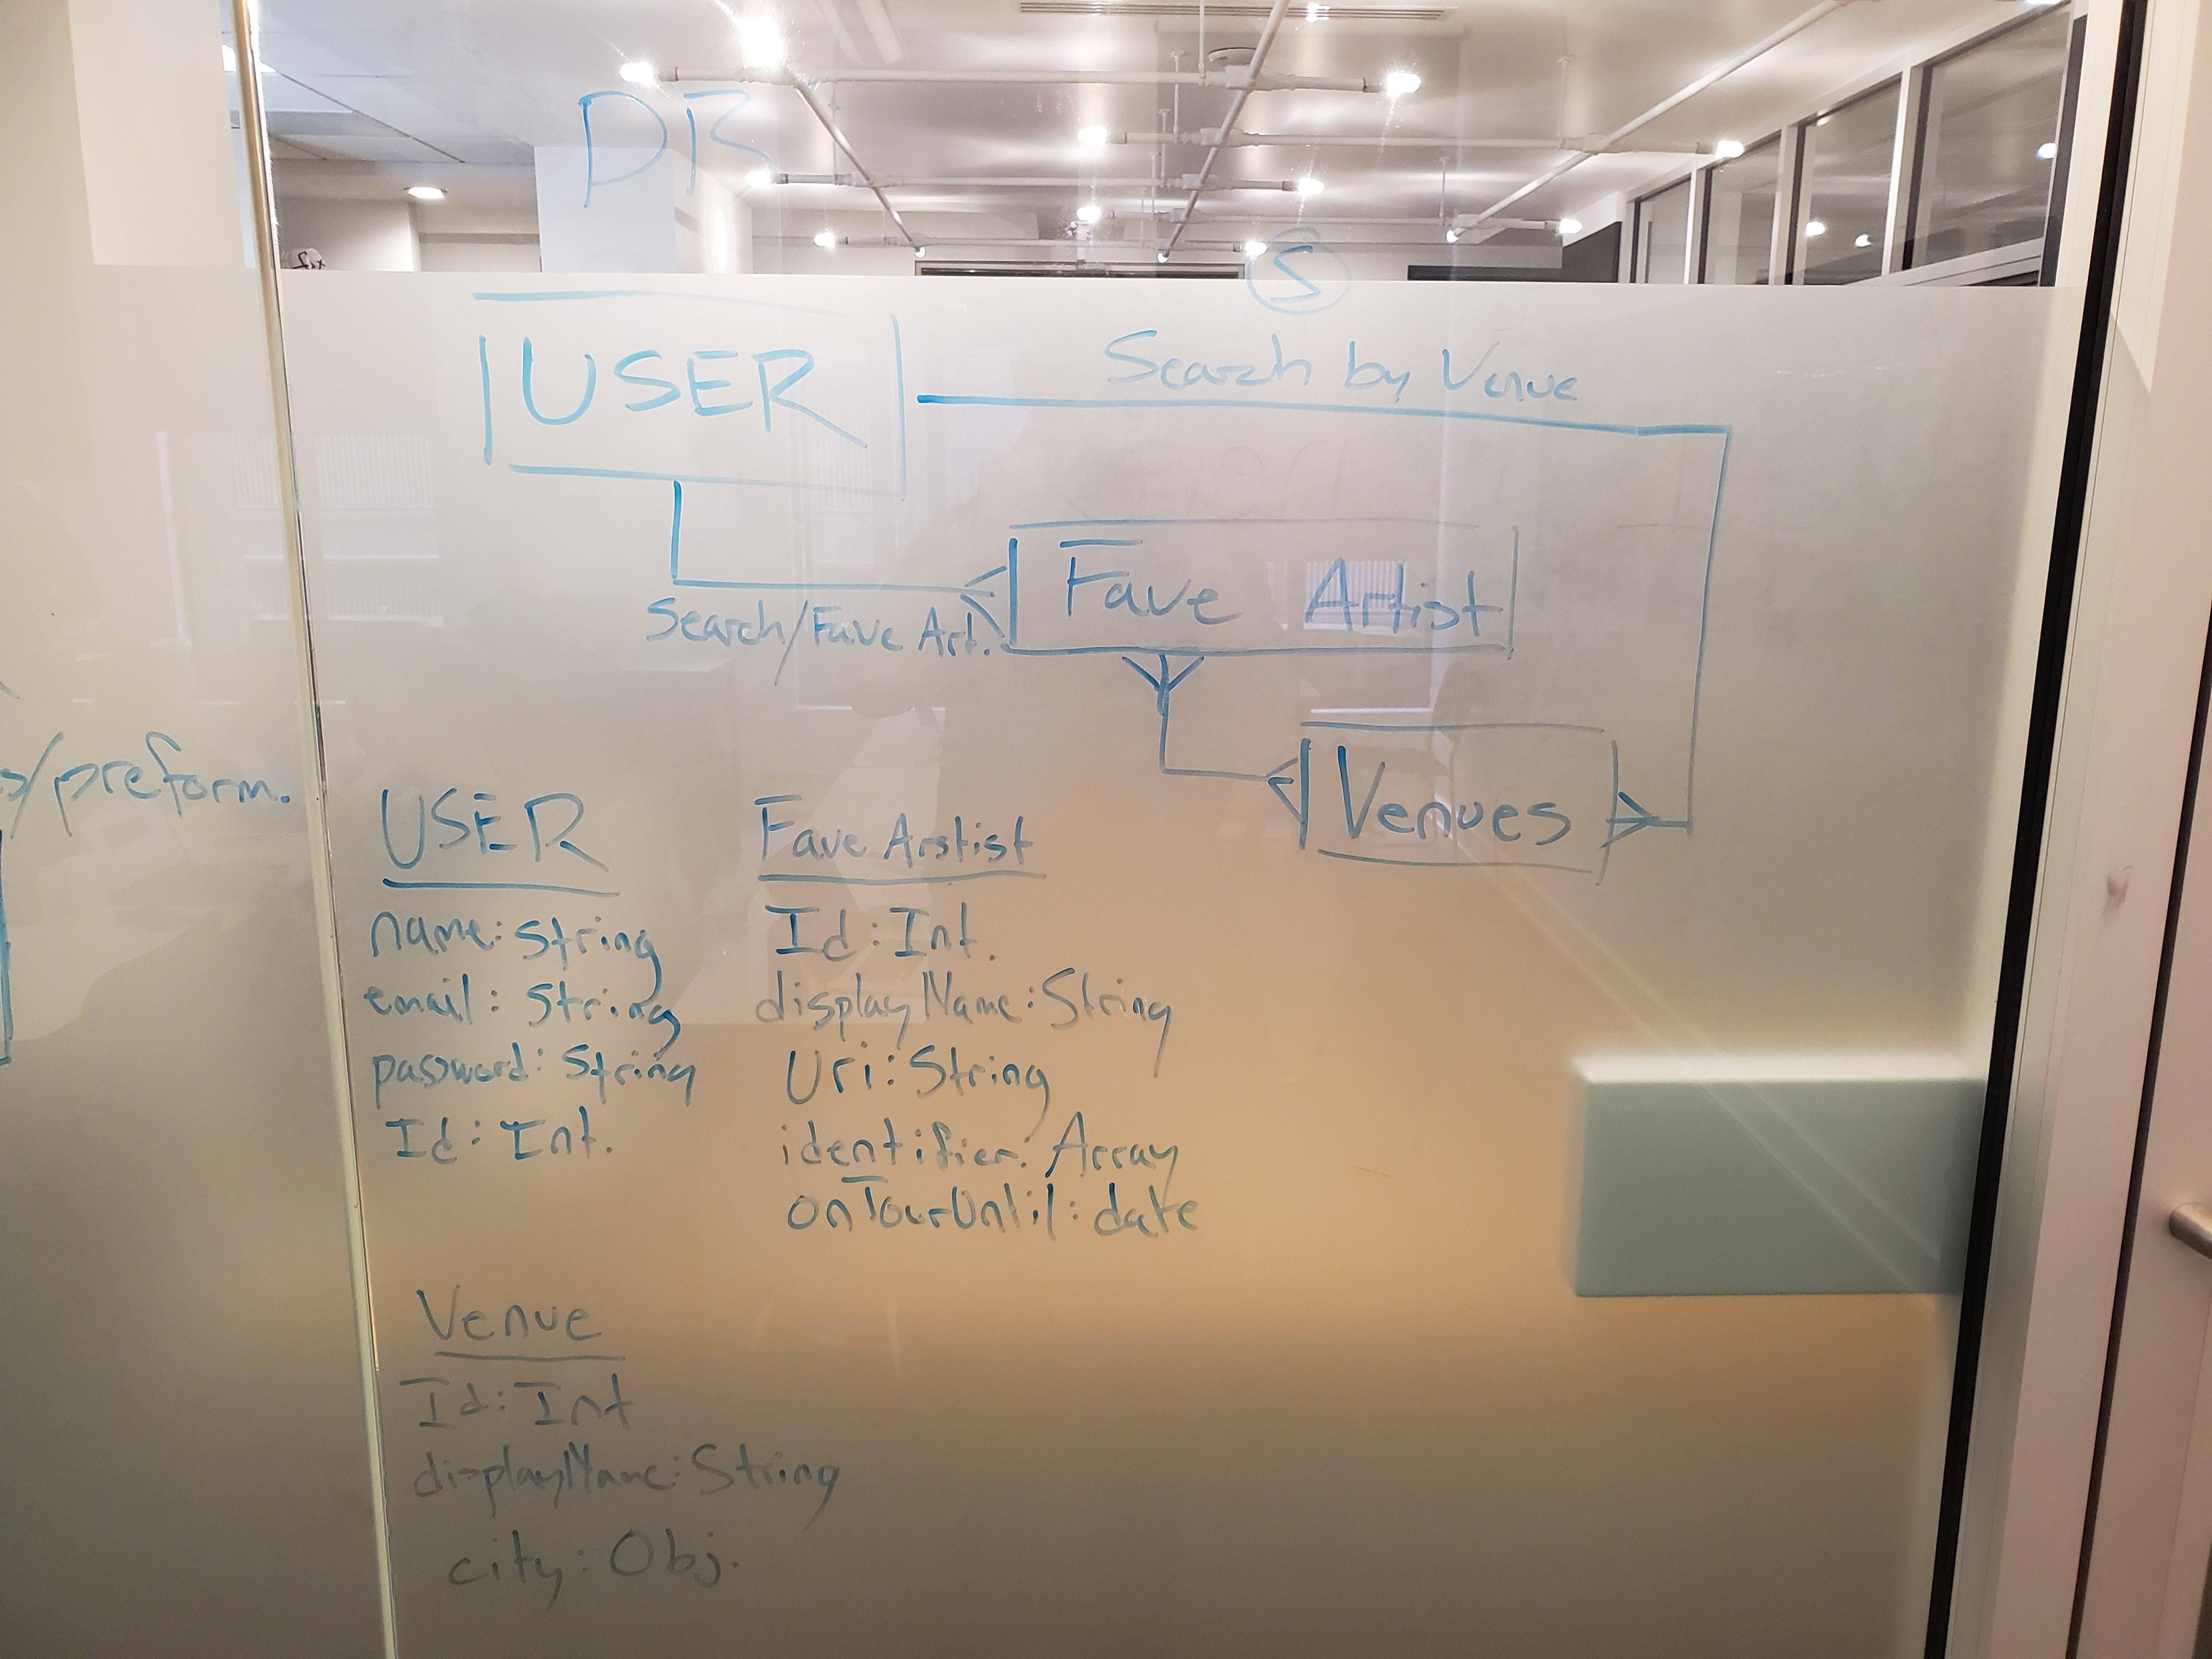 DB
S
USER
Search by Venue
Fave Artist
Search/Fave Art.
Venues
/preform.
USER
name: String
email: String
password: String
Id: Int.
Fave Arstist
Id: Int.
displayName: String
Uri: String
identifier: Array
onTourUntil: date
Venue
Id: Int
displayName: String
city: Obj.